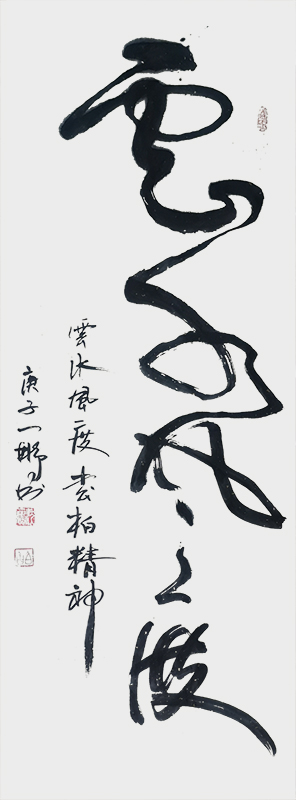 雲水風度
雲水風度松柏精神
庚子一